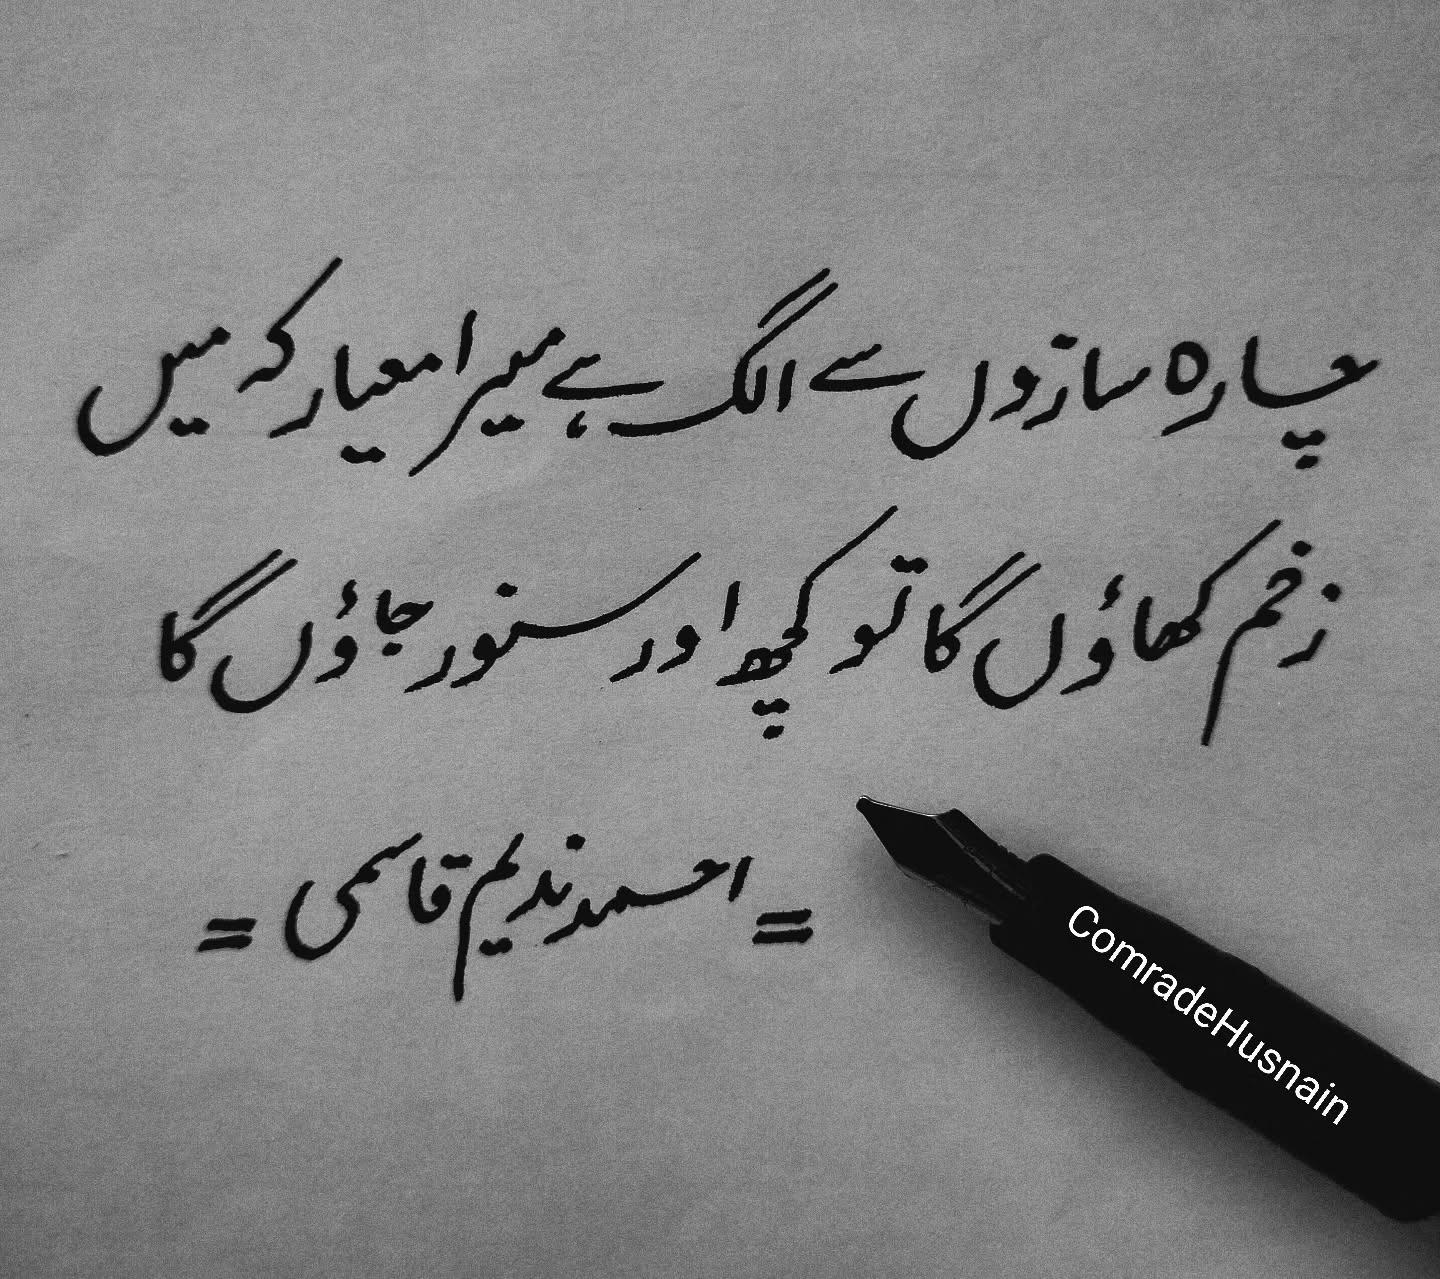 چارہ سازوں سے الگ ہے میرا معیار کہ میں
زخم کھاؤں گا تو کچھ اور سنور جاؤں گا
= احمد ندیم قاسمی =
ComradeHusnain